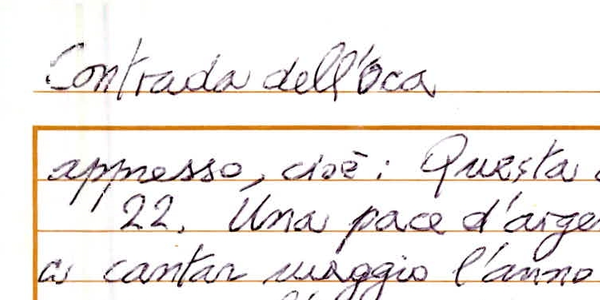 Contrada dell'Oca
appresso, cioè: Questa
22. Una pace d'arge
a cantar maggio l'anno